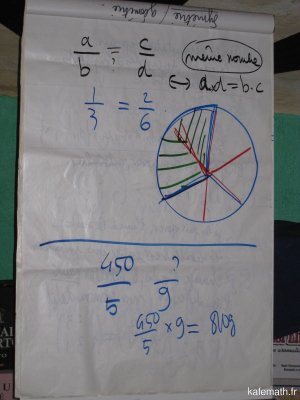 Symétrie / géométrie
a/b =? c/d
même nombre
⟺ a×d = b·c
1/3 = 2/6
450/5 ?/9
450/5 × 9 = 810g
kafemath.fr